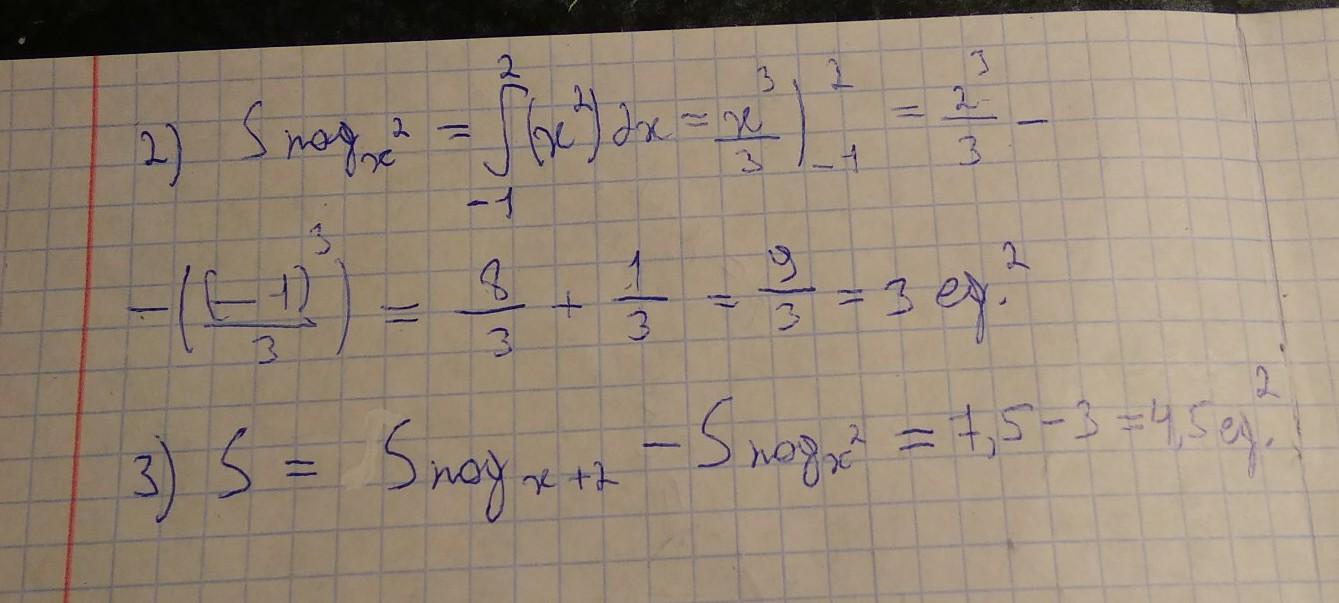 2) S под x² = ∫₋₁² (x²) dx = x³/3 |₋₁² = 2³/3 −
− ((−1)³/3) = 8/3 + 1/3 = 9/3 = 3 ед.²
3) S = S под x+2 − S под x² = 7,5 − 3 = 4,5 ед.²